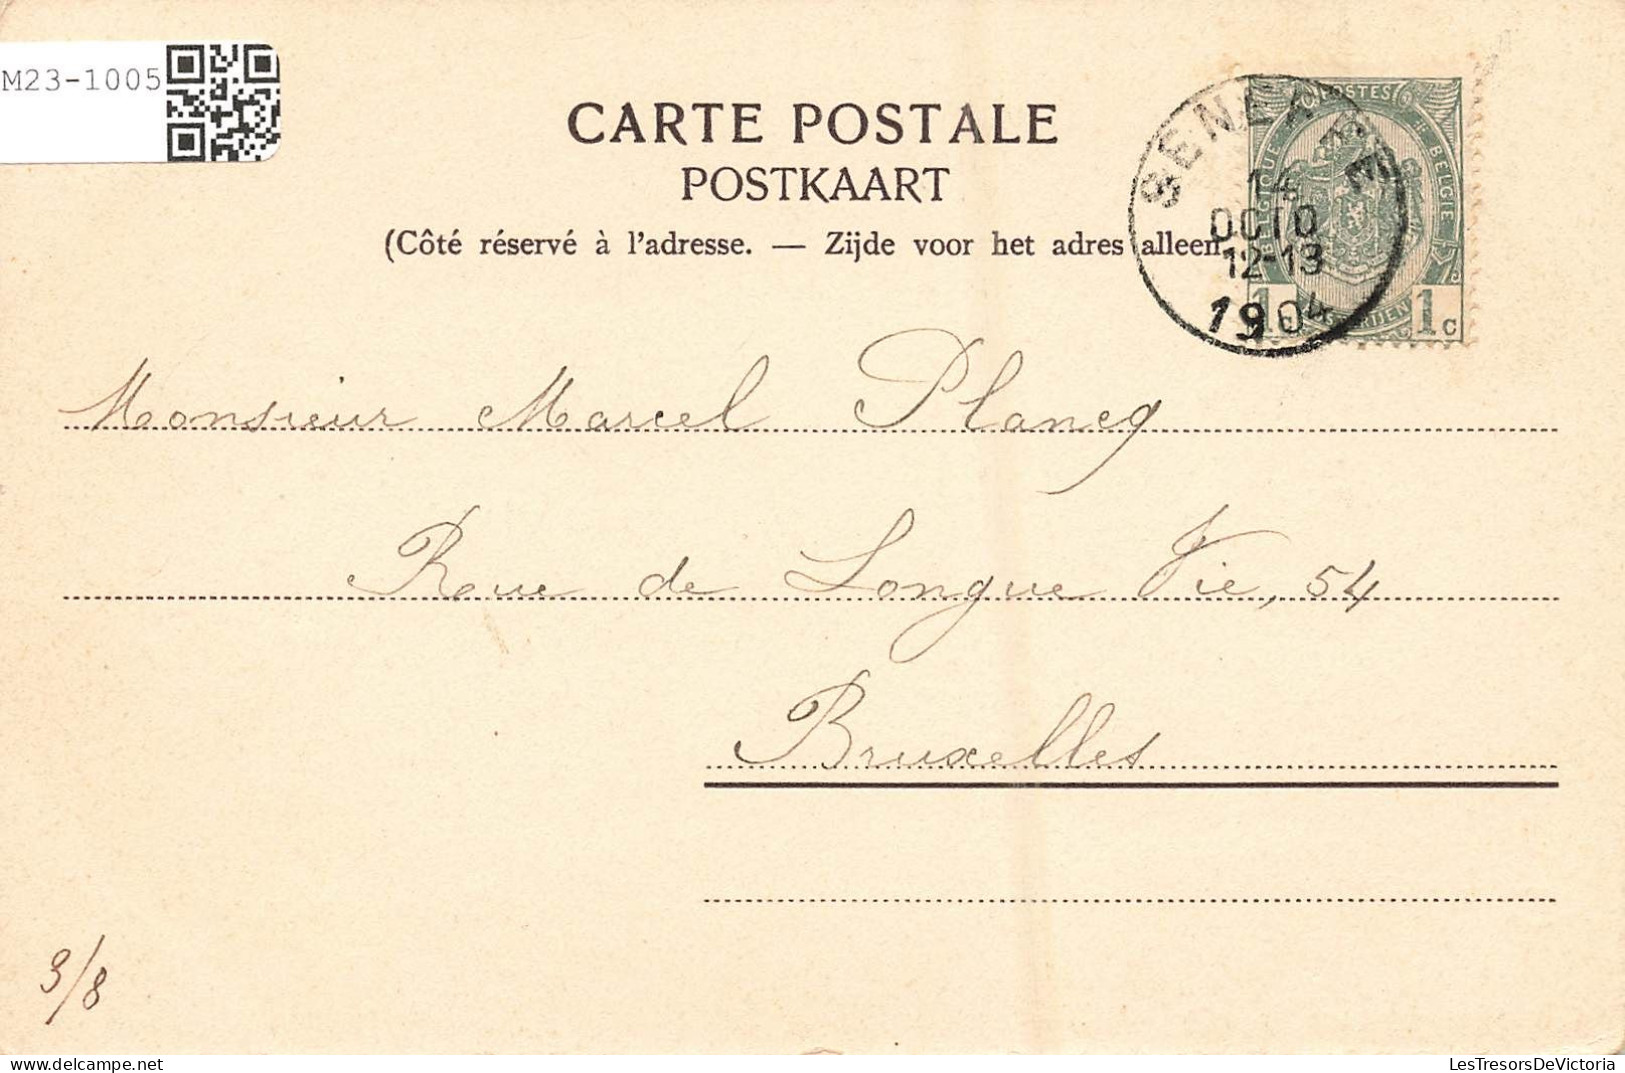 M23-1005
CARTE POSTALE
POSTKAART
(Côté réservé à l'adresse. — Zijde voor het adres alleen
SENEFFE
14
OCTO
12-13
1904
POSTES
BELGIQUE
BELGIE
1c
1c
Monsieur Marcel Plancq
Rue de Longue Vie, 54
Bruxelles
3/8
LesTresorsDeVictoria